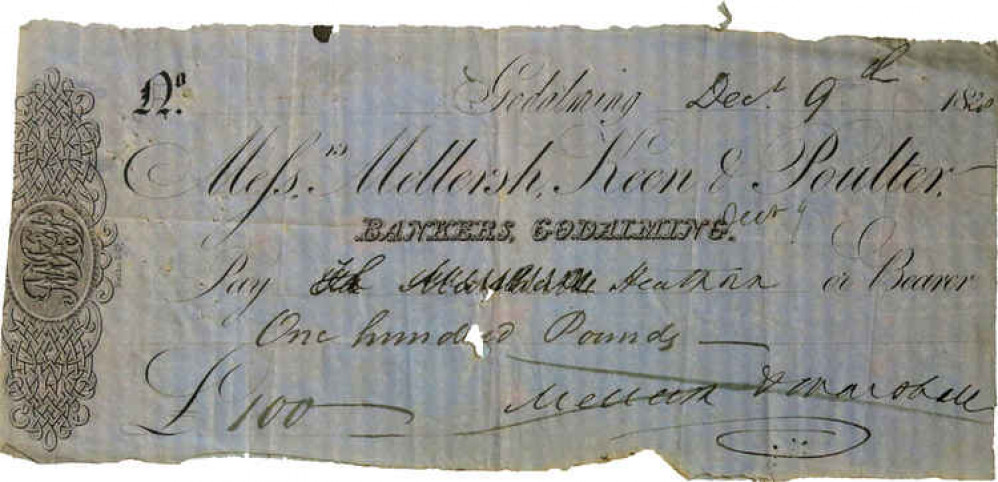 No. Godalming Decr. 9th 182
Messrs. Mellersh, Keen & Poulter.
BANKERS, GODALMING.
Pay Heathorn or Bearer
One hundred Pounds
£100 Mellersh &